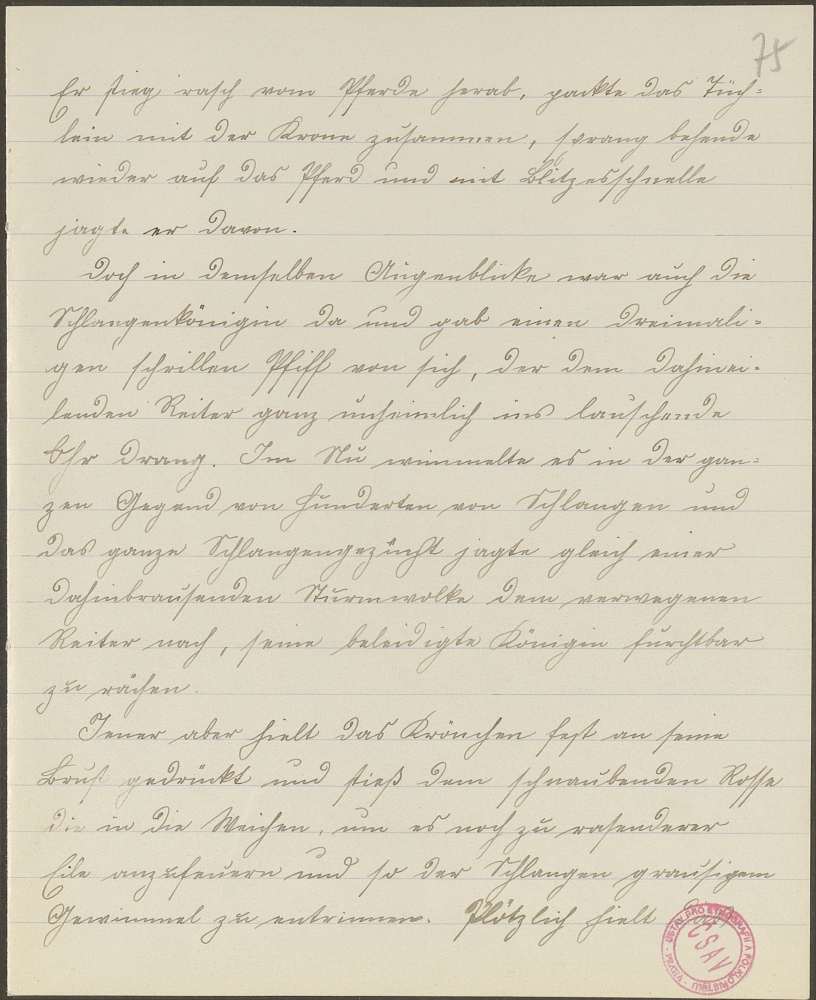 75
Er stieg rasch vom Pferde herab, packte das Tüch-
lein mit der Krone zusammen, sprang behende
wieder auf das Pferd und mit Blitzesschnelle
jagte er davon.
Doch in demselben Augenblicke war auch die
Schlangenkönigin da und gab einen dreimali-
gen schrillen Pfiff von sich, der dem dahinei-
lenden Reiter ganz unheimlich ins lauschende
Ohr drang. Im Nu wimmelte es in der gan-
zen Gegend von hunderten von Schlangen und
das ganze Schlangengezücht jagte gleich einer
dahinbrausenden Sturmwolke dem verwegenen
Reiter nach, seine beleidigte Königin furchtbar
zu rächen.
Jener aber hielt das Krönchen fest an seine
Brust gedrückt und stieß dem schnaubenden Rosse
die in die Weichen, um es noch zu rasenderer
Eile anzufeuern und so der Schlangen grausigem
Gewimmel zu entrinnen. Plötzlich hielt
ÚSTAV PRO ETNOGRAFII A FOLKLORISTIKU
ČSAV
PRAHA